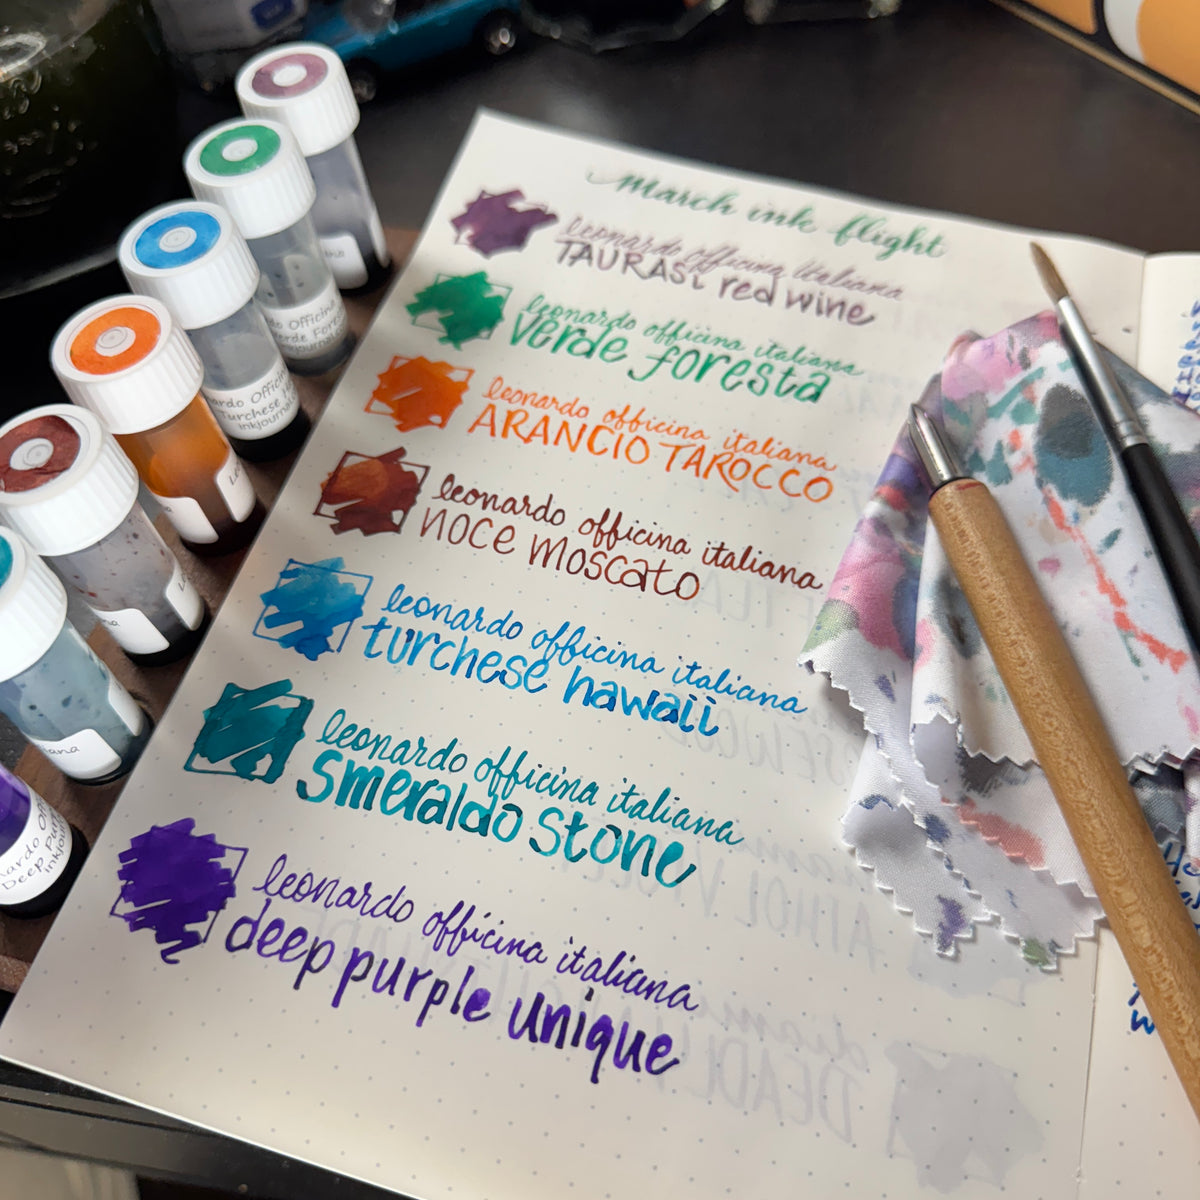 march ink flight
leonardo officina italiana
TAURASI red wine
leonardo officina italiana
verde foresta
leonardo officina italiana
ARANCIO TAROCCO
leonardo officina italiana
noce moscato
leonardo officina italiana
turchese hawaii
leonardo officina italiana
smeraldo stone
leonardo officina italiana
deep purple unique
Verde
inkjournal
Turchese
inkjournal
Deep